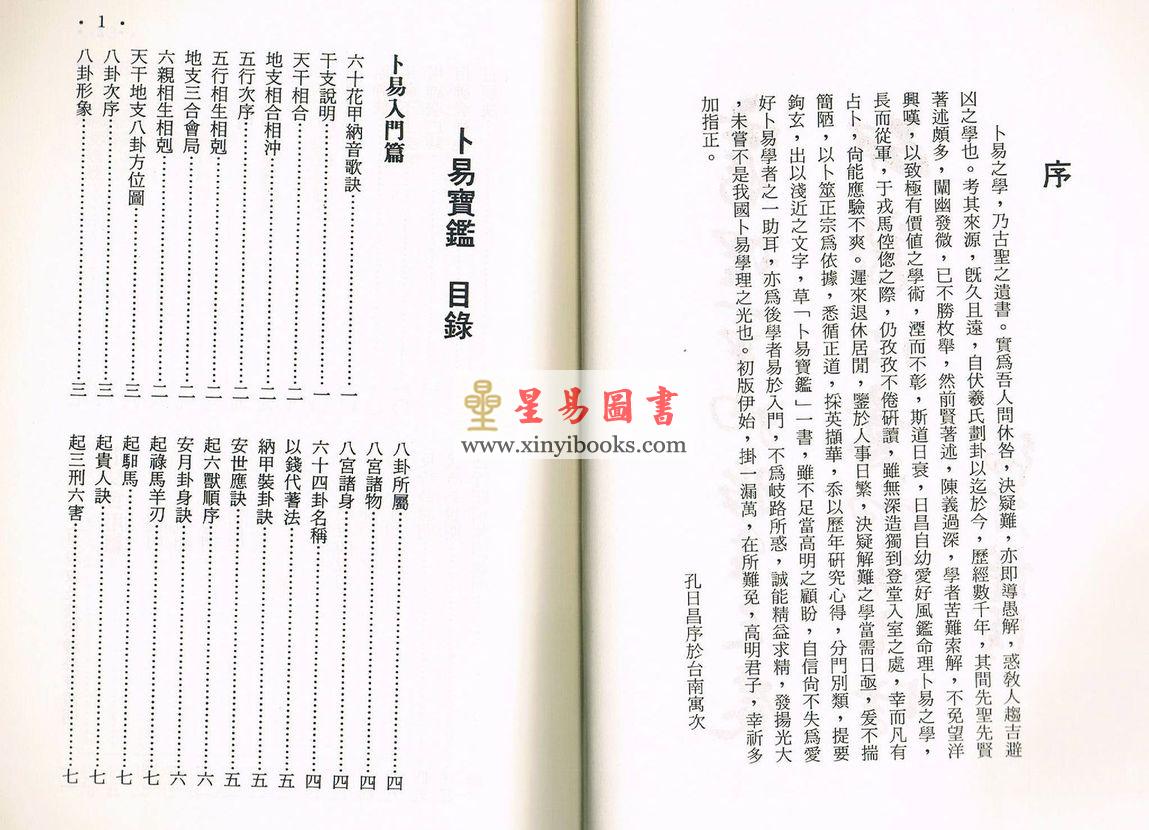 序
卜易之學，乃古聖之遺書。實爲吾人問休咎，決疑難，亦即導愚解，惑敎人趨吉避
凶之學也。考其來源，旣久且遠，自伏羲氏劃卦以迄於今，歷經數千年，其間先聖先賢
著述頗多，闡幽發微，已不勝枚舉，然前賢著述，陳義過深，學者苦難索解，不免望洋
興嘆，以致極有價值之學術，湮而不彰，斯道日衰，日昌自幼愛好風鑑命理卜易之學，
長而從軍，于戎馬倥偬之際，仍孜孜不倦研讀，雖無深造獨到登堂入室之處，幸而凡有
占卜，尙能應驗不爽。遲來退休居閒，鑒於人事日繁，決疑解難之學當需日亟，爰不揣
簡陋，以卜筮正宗爲依據，悉循正道，採英擷華，忝以歷年研究心得，分門別類，提要
鉤玄，出以淺近之文字，草「卜易寶鑑」一書，雖不足當高明之顧盼，自信尙不失爲愛
好卜易學者之一助耳，亦爲後學者易於入門，不爲岐路所惑，誠能精益求精，發揚光大
，未嘗不是我國卜易學理之光也。初版伊始，掛一漏萬，在所難免，高明君子，幸祈多
加指正。
孔日昌序於台南寓次
卜易寶鑑 目錄
卜易入門篇
六十花甲納音歌訣…………一
干支說明…………一
天干相合…………二
地支相合相沖…………二
五行次序…………二
五行相生相剋…………二
地支三合會局…………二
六親相生相剋…………二
天干地支八卦方位圖…………三
八卦次序…………三
八卦形象…………三
八卦所屬…………四
八宮諸物…………四
八宮諸身…………四
六十四卦名稱…………四
以錢代蓍法…………五
納甲裝卦訣…………五
安世應訣…………五
起六獸順序…………六
安月卦身訣…………六
起祿馬羊刃…………七
起馹馬…………七
起貴人訣…………七
起三刑六害…………七
• 1 •
星易圖書
www.xinyibooks.com